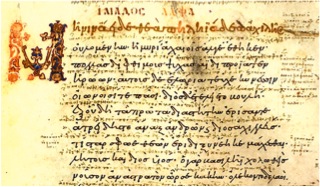 ΙΛΙΑΔΟΣ ΑΛΦΑ
Μῆνιν ἄειδε θεὰ πηληϊάδεω ἀχιλῆος
οὐλομένην ἣ μυρί' ἀχαιοῖς ἄλγε' ἔθηκεν
πολλὰς δ' ἰφθίμους ψυχὰς ἄϊδι προΐαψεν
ἡρώων· αὐτοὺς δὲ ἑλώρια τεῦχε κύνεσσιν
οἰωνοῖσί τε πᾶσι· διὸς δ' ἐτελείετο βουλή
ἐξ οὗ δὴ τὰ πρῶτα διαστήτην ἐρίσαντε
ἀτρείδης τε ἄναξ ἀνδρῶν καὶ δῖος ἀχιλλεύς
τίς τάρ σφωε θεῶν ἔριδι ξυνέηκε μάχεσθαι
λητοῦς καὶ διὸς υἱός· ὁ γὰρ βασιλῆϊ χολωθεὶς
νοῦσον ἀνὰ στρατὸν ὦρσε κακήν· ὀλέκοντο δὲ λαοί